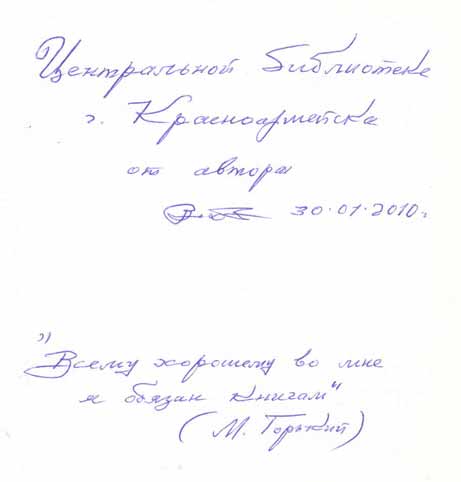 Центральной библиотеке
г. Красноармейска
от автора
30.01.2010г.
„Всему хорошему во мне
я обязан книгам"
(М. Горький)